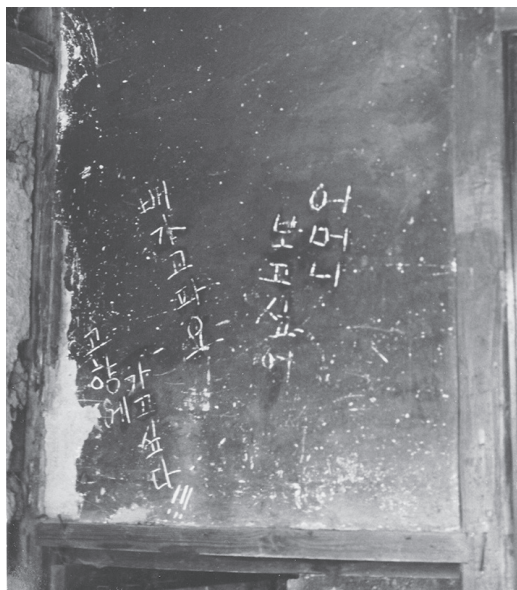 어머니
보고싶어
배가고파요
고향에
가고싶다!!!